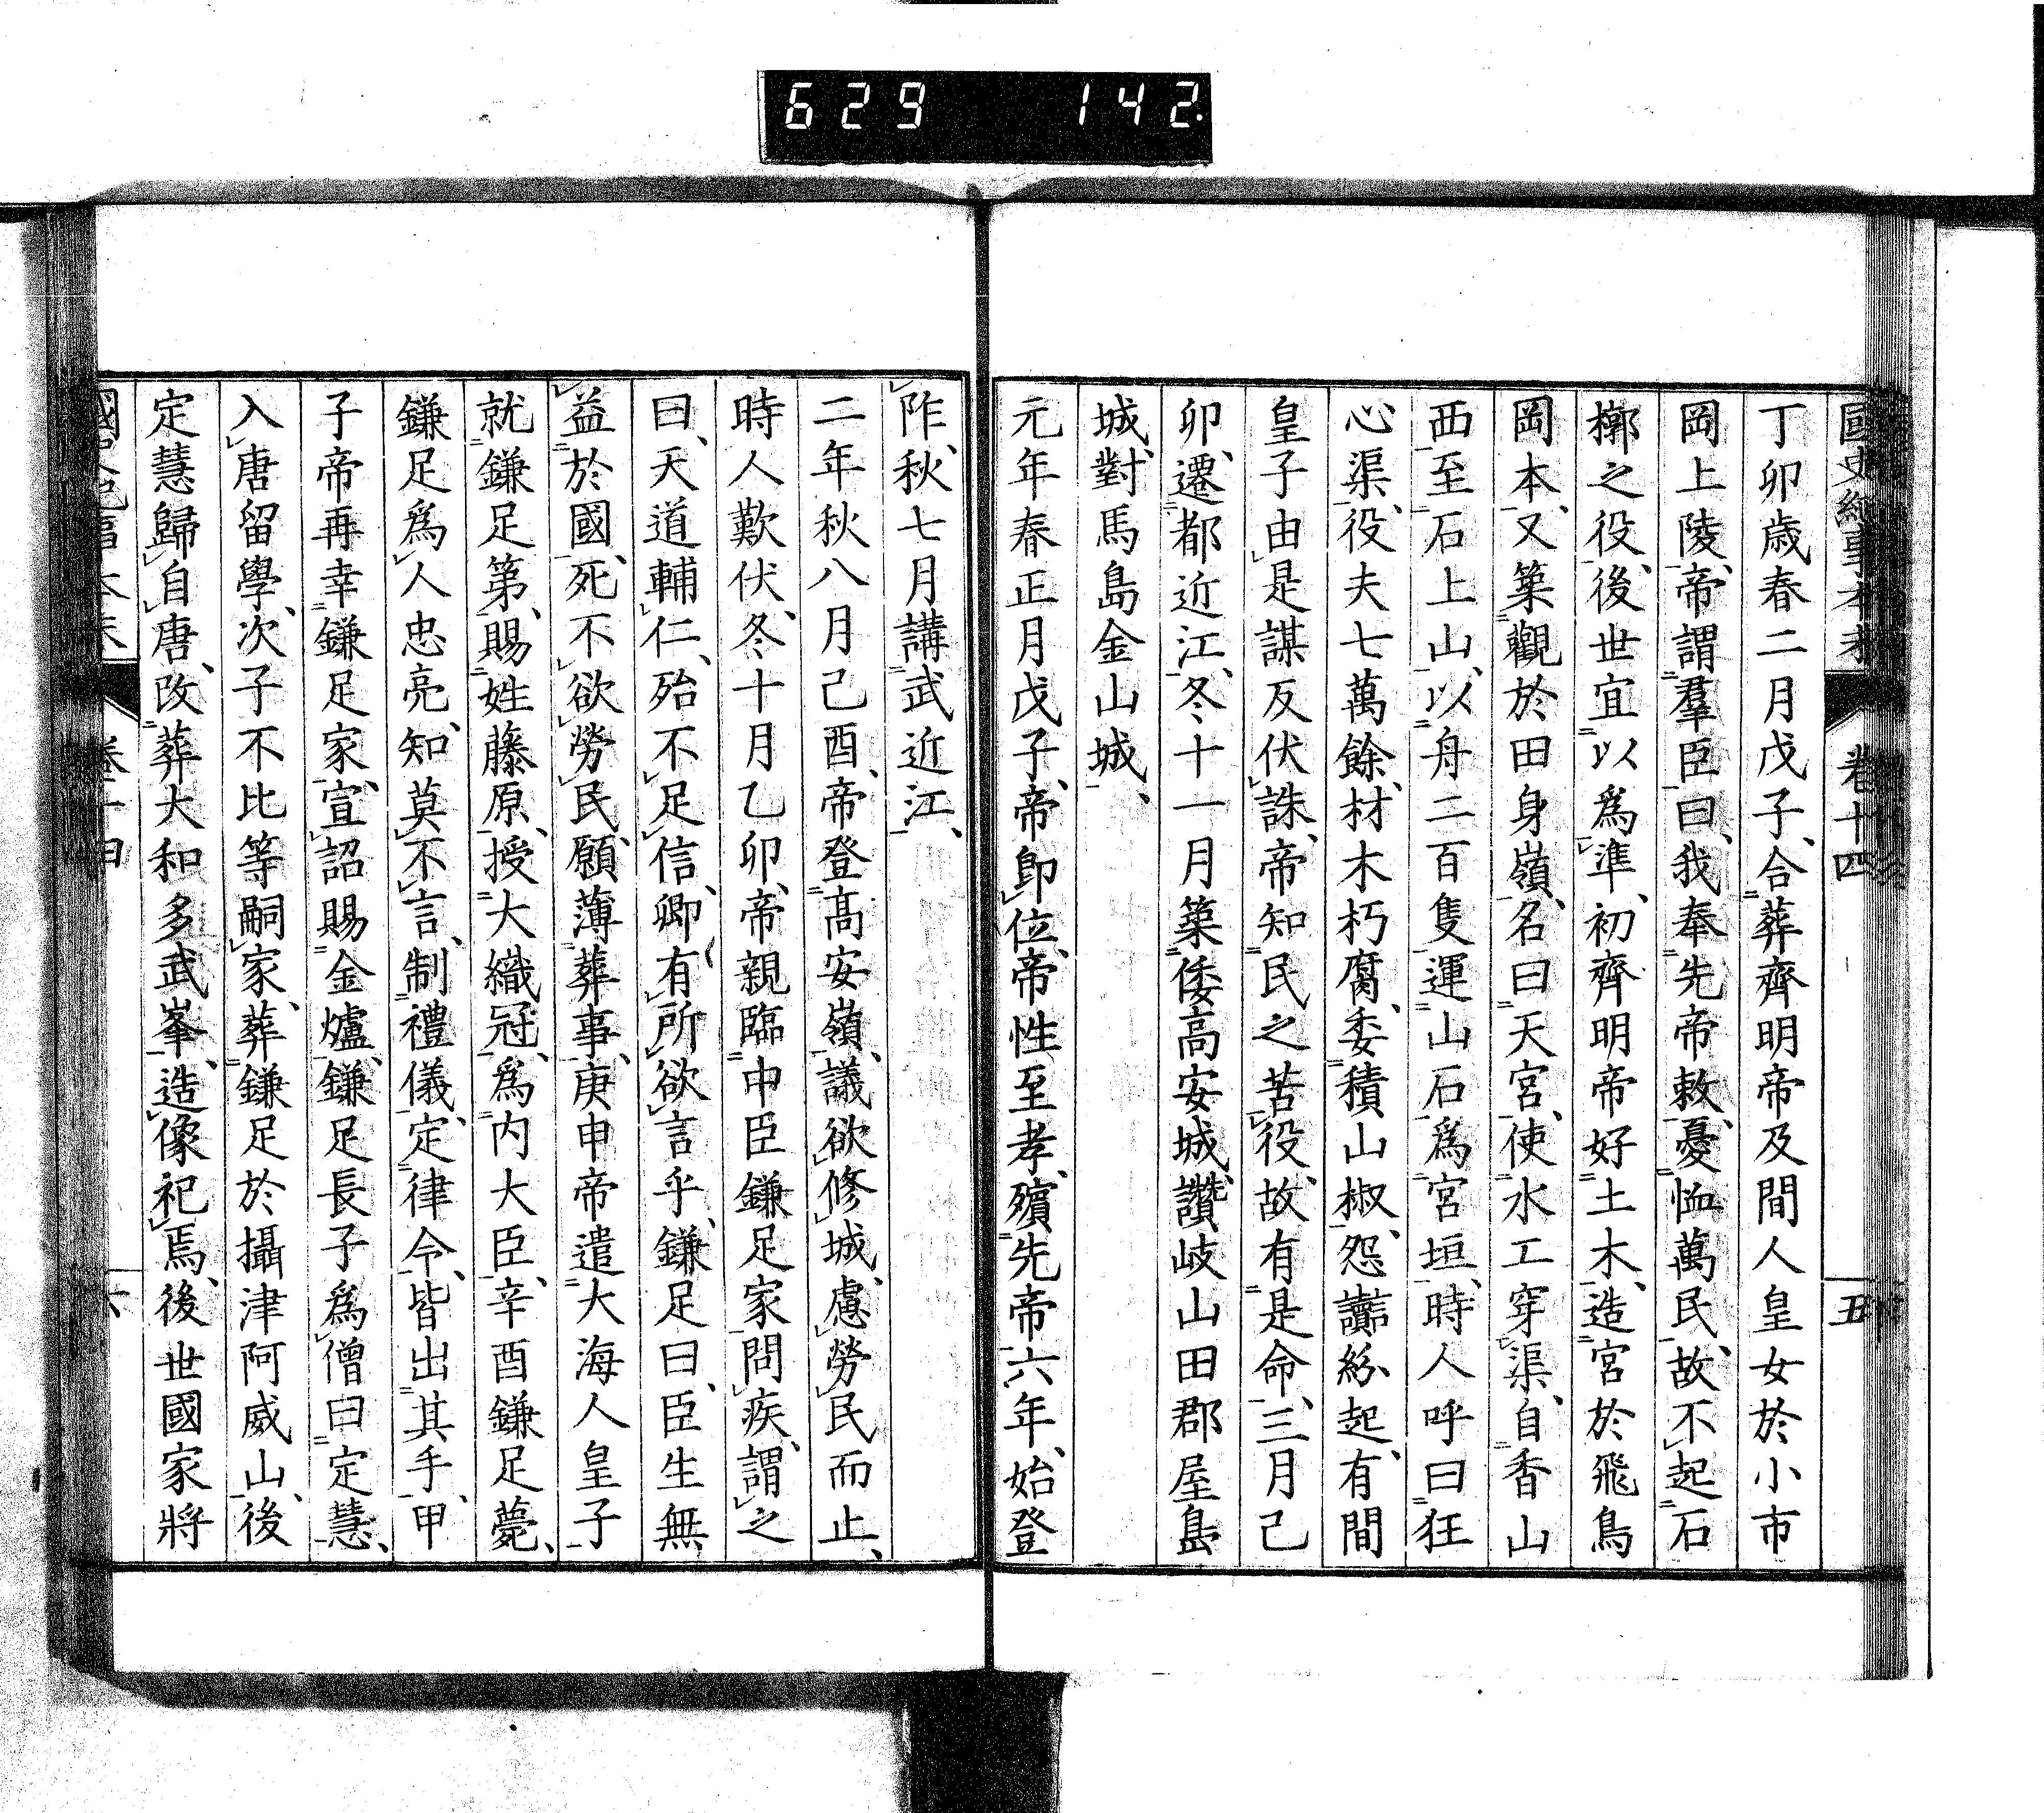 629 142
國史紀事本末 卷十四 五
丁卯歳春二月戊子、合葬齊明帝及間人皇女於小市
岡上陵、帝謂羣臣曰、我奉先帝敕、憂恤萬民、故不起石
槨之役、後世宜以爲準、初齊明帝好土木、造宮於飛鳥
岡本、又築觀於田身嶺、名曰天宮、使水工穿渠、自香山
西至石上山、以舟二百隻運山石爲宮垣、時人呼曰狂
心渠、役夫七萬餘、材木朽腐、委積山椒、怨讟紛起、有間
皇子由是謀反伏誅、帝知民之苦役、故有是命、三月己
卯、遷都近江、冬十一月築倭高安城、讚岐山田郡屋島
城、對馬島金山城、
元年春正月戊子、帝卽位、帝性至孝、殯先帝六年、始登
阼、秋七月講武近江、
二年秋八月己酉、帝登高安嶺、議欲修城、慮勞民而止、
時人歎伏、冬十月乙卯、帝親臨中臣鎌足家問疾、謂之
曰、天道輔仁、殆不足信、卿有所欲言乎、鎌足曰、臣生無
益於國、死不欲勞民、願薄葬事、庚申帝遣大海人皇子
就鎌足第、賜姓藤原、授大織冠、爲内大臣、辛酉鎌足薨、
鎌足爲人忠亮、知莫不言、制禮儀、定律令、皆出其手、甲
子帝再幸鎌足家、宣詔賜金爐、鎌足長子爲僧曰定慧、
入唐留學、次子不比等嗣家、葬鎌足於攝津阿威山、後
定慧歸自唐、改葬大和多武峯、造像祀焉、後世國家將
國史紀事本末 卷十四 六